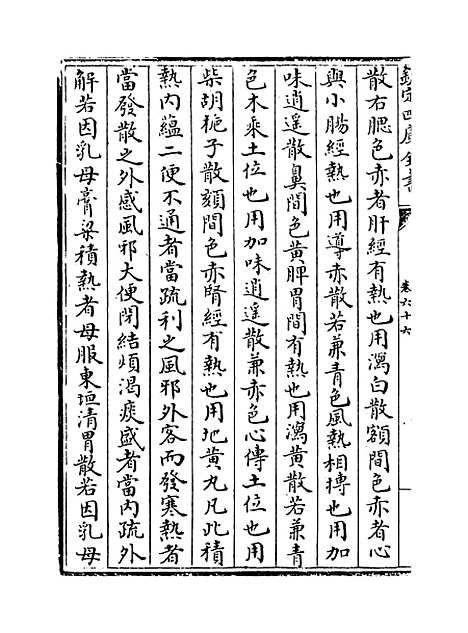 欽定四庫全書
卷六十六
散右腮色赤者肝經有熱也用瀉白散額間色赤者心
與小腸經熱也用導赤散若兼青色風熱相搏也用加
味逍遥散鼻間色黄脾胃間有熱也用瀉黄散若兼青
色木乘土位也用加味逍遥散兼赤色心傳土位也用
柴胡梔子散頦間色赤腎經有熱也用地黄丸凡此積
熱内藴二便不通者當疏利之風邪外客而發寒熱者
當發散之外感風邪大便閉結煩渴痰盛者當内疏外
解若因乳母膏粱積熱者母服東垣清胃散若因乳母